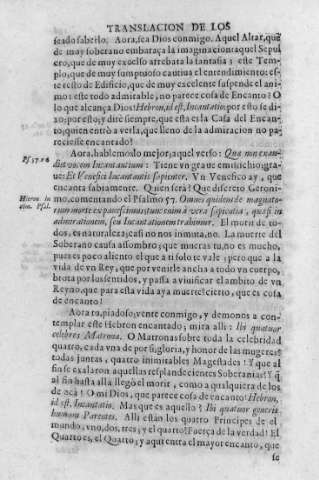 TRANSLACION DE LOS
seado saberlo. Aora, sea Dios conmigo. Aquel Altar, que
de muy soberano embaraça la imaginacion: aquel Sepul
cro, que de muy excelso arrebata la fantasia: este Tem-
plo, que de muy sumptuoso cautiva el entendimiento: es-
te resto de Edificio, que de muy excelente suspende el ani
mo: este todo admirable, no parece cosa de Encanto? O
lo que alcança Dios! Hebron, id est, Incantatio: por esto se di-
xo; por esto, y diré siempre, que esta es la Casa del Encan-
to, quien entrò a verla, que lleno de la admiracion no pa-
reciesse encantado?
Aora, hablemoslo mejor, aquel verso: Quæ non exau-
Ps. 57. v. 6
diet vocem Incantantium: Tiene vn grave enmisticho gra-
ue: Et Venefici Incantantis sapienter. Vn Venefico ay, que
encanta sabiamente. Quien serà? Que discreto Geroni-
Hieron. in
com. Psal.
mo, comentando el Psalmo 57. Omnes quidem de magnato-
rum mortis
admirationem, seu Incantationem trahimur. El morir de to-
dos, es naturaleza; casi no nos inmuta, no. La muerte del
Soberano causa assombro; que mueras tu, no es mucho,
pues es poco aliento el que a ti solo te vale; pero que a la
vida de vn Rey, que por venirle ancha a todo vn cuerpo,
brota por los sentidos, y passa a viuificar el ambito de vn
Reyno, que para esta vida aya muerte! cierto, que es cosa
de encanto!
Aora tu, piadoso, vente conmigo, y demonos a con-
templar este Hebron encantado; mira alli: Ibi quatuor
celebres Matronæ. O Matronas sobre toda la celebridad
quatro, cada vna de por si, gloria, y honor de las mugeres:
todas juntas, quatro inimitables Magestades! Y que al
fin se exalaron aquellas resplandecientes Soberanias! Y q̃
al fin hasta alla llegò el morir, como a qualquiera de los
de acà! O mi Dios, que parece cosa de encanto! Hebron,
id est, Incantatio. Mas que es aquello? Ibi quatuor generis
humani Parentes. Alli estàn los quatro Principes de el
mundo, vno, dos, tres; y el quarto? Fuerça de la verdad! El
Quarto es, el Quarto; y aqui entra el mayor encanto, que
se